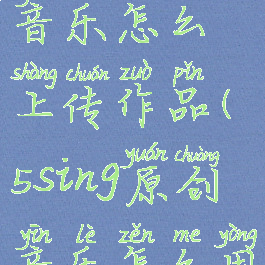 音乐怎么
shàng chuán zuò pǐn
上传作品(
yuán chuàng
5sing原创
yīn lè zěn me yòng
音乐怎么用